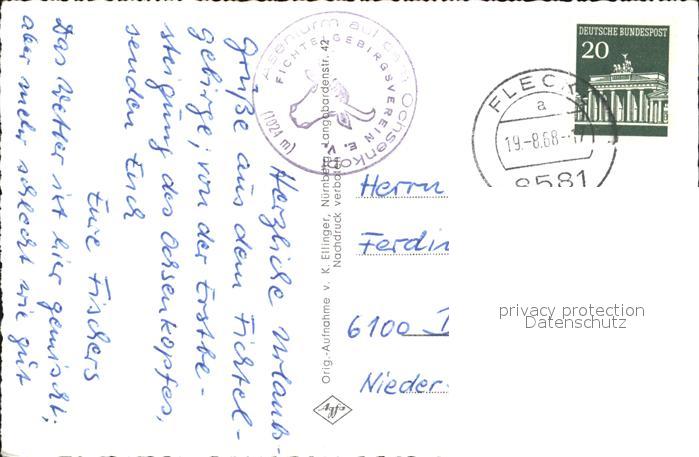 Herzliche Urlaubs-
grüße aus dem Fichtel-
gebirge, von der Erstbe-
steigung des Ochsenkopfes,
senden Euch
Eure Fischers
Das Wetter ist hier gemischt;
aber mehr schlecht wie gut
Asenturm auf dem Ochsenkopf
FICHTELGEBIRGSVEREIN E.V.
(1024 m)
Orig.-Aufnahme v. K. Etlinger, Nürnberg, Langobardenstr. 42
Nachdruck verboten
Agfa
DEUTSCHE BUNDESPOST
20
FLECK
a
19.-8.68.-17
8581
Herrn
Ferdin
6100
Nieder-
privacy protection
Datenschutz